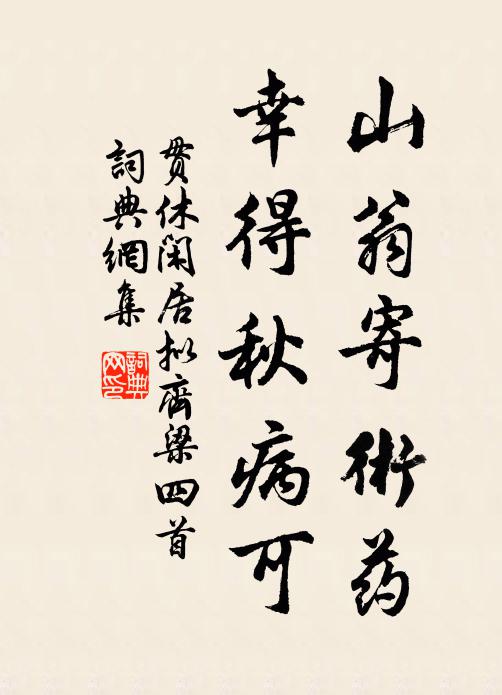 山翁寄術药
幸得秋病可
贯休閑居拟齊梁四首
詞典網集
詞典網印